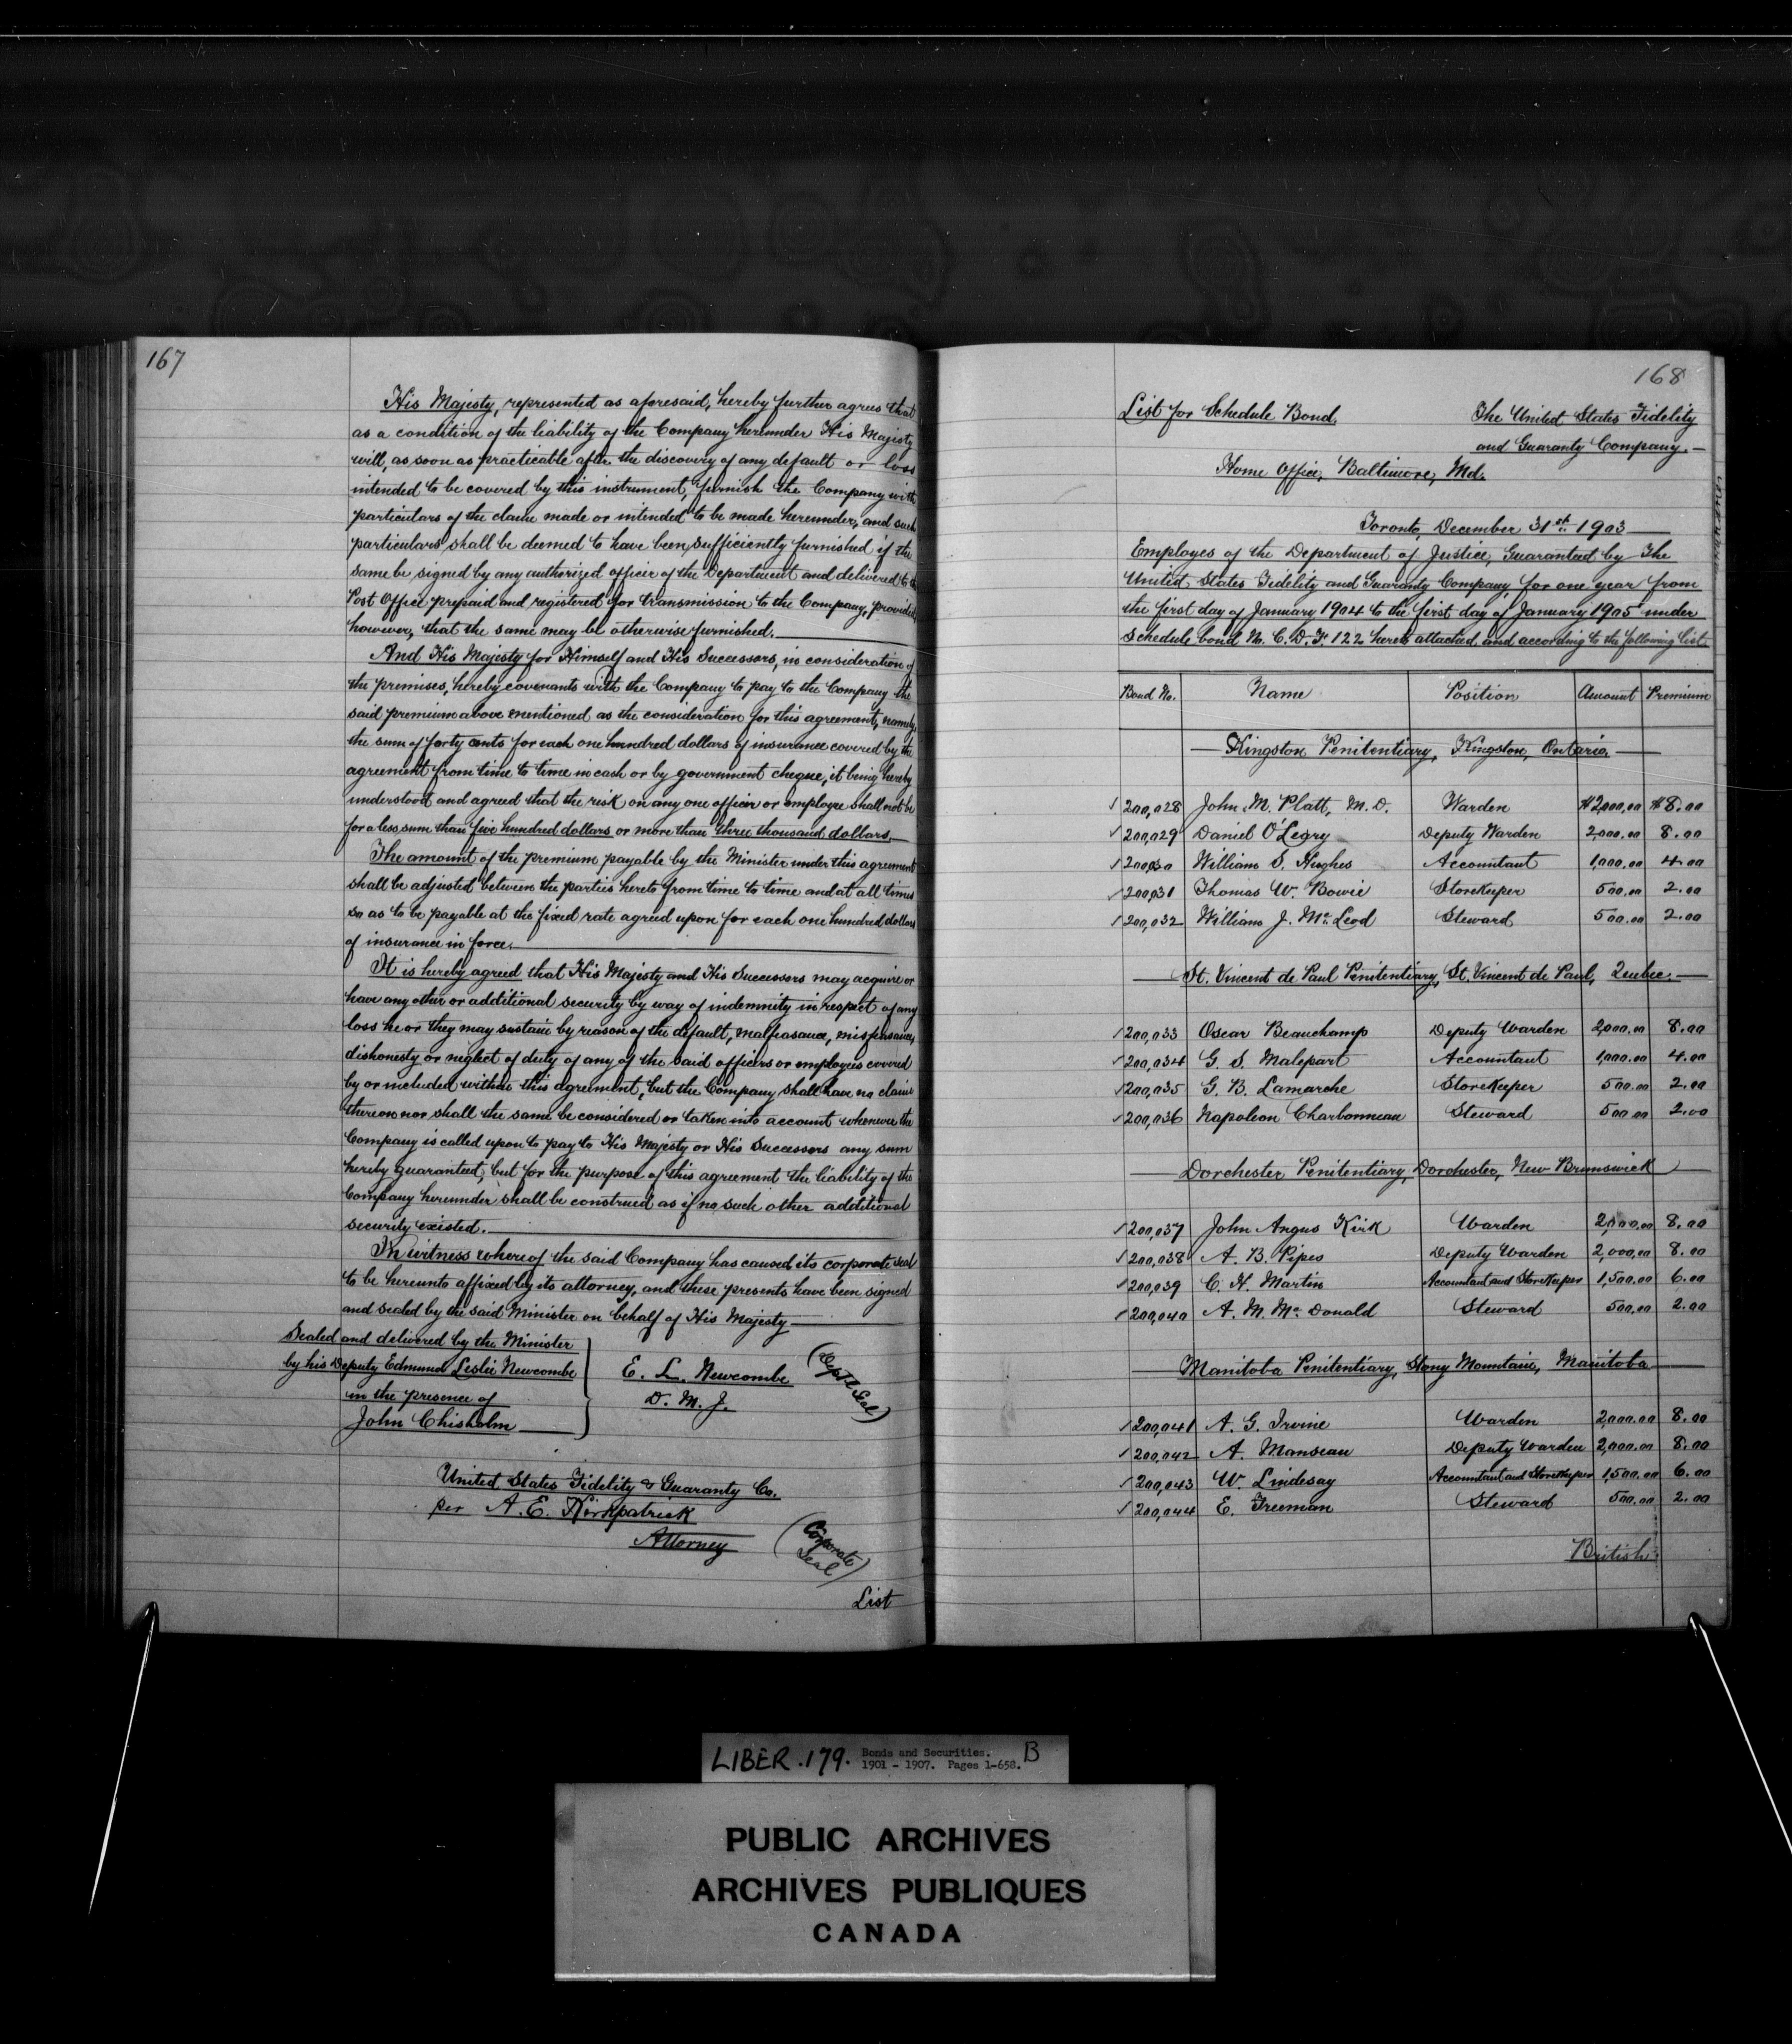 167
His Majesty, represented as aforesaid, hereby further agrees that
as a condition of the liability of the Company hereunder His Majesty
will, as soon as practicable after the discovery of any default or loss
intended to be covered by this instrument, furnish the Company with
particulars of the claim made or intended to be made hereunder, and such
particulars shall be deemed to have been sufficiently furnished if the
same be signed by any authorized officer of the Department and delivered to the
Post Office prepaid and registered for transmission to the Company, provided,
however, that the same may be otherwise furnished.
And His Majesty for Himself and His Successors, in consideration of
the premises, hereby covenants with the Company to pay to the Company the
said premium above mentioned as the consideration for this agreement, namely,
the sum of forty cents for each one hundred dollars of insurance covered by the
agreement from time to time in cash or by government cheque, it being hereby
understood and agreed that the risk on any one officer or employee shall not be
for a less sum than five hundred dollars or more than three thousand dollars.
The amount of the premium payable by the Minister under this agreement
shall be adjusted between the parties hereto from time to time and at all times
so as to be payable at the fixed rate agreed upon for each one hundred dollars
of insurance in force.
It is hereby agreed that His Majesty and His Successors may acquire or
have any other or additional security by way of indemnity in respect of any
loss he or they may sustain by reason of the default, malfeasance, misfeasance,
dishonesty or neglect of duty of any of the said officers or employees covered
by or included within this agreement, but the Company shall have no claim
thereon nor shall the same be considered or taken into account whenever the
Company is called upon to pay to His Majesty or His Successors any sum
hereby guaranteed, but for the purpose of this agreement the liability of the
Company hereunder shall be construed as if no such other additional
security existed.
In witness whereof the said Company has caused its corporate seal
to be hereunto affixed by its attorney, and these presents have been signed
and sealed by the said Minister on behalf of His Majesty
Sealed and delivered by the Minister
by his Deputy Edmund Leslie Newcombe
in the presence of
John Chisholm
E. L. Newcombe
D. M. J.
(Dept'l Seal)
United States Fidelity & Guaranty Co.
per A. E. Kirkpatrick
Attorney
(Corporate
Seal)
List
168
List for Schedule Bond.
The United States Fidelity
and Guaranty Company.
Home Office, Baltimore, Md.
Toronto, December 31st 1903
Employes of the Department of Justice, Guaranteed by The
United States Fidelity and Guaranty Company, for one year from
the first day of January 1904 to the first day of January 1905 under
Schedule bond No. C. D. F. 122 hereto attached and according to the following list
Bond No. Name Position Amount Premium
Kingston Penitentiary, Kingston, Ontario.
✓ 200,028 John M. Platt, M. D. Warden $2,000.00 $8.00
✓ 200,029 Daniel O'Leary Deputy Warden 2,000.00 8.00
✓ 200,030 William S. Hughes Accountant 1,000.00 4.00
✓ 200,031 Thomas W. Bowie Storekeeper 500.00 2.00
✓ 200,032 William J. McLeod Steward 500.00 2.00
St. Vincent de Paul Penitentiary, St. Vincent de Paul, Quebec.
✓ 200,033 Oscar Beauchamp Deputy Warden 2,000.00 8.00
✓ 200,034 G. S. Malepart Accountant 1,000.00 4.00
✓ 200,035 G. B. Lamarche Storekeeper 500.00 2.00
✓ 200,036 Napoleon Charbonneau Steward 500.00 2.00
Dorchester Penitentiary, Dorchester, New Brunswick
✓ 200,037 John Angus Kirk Warden 2,000.00 8.00
✓ 200,038 A. B. Pipes Deputy Warden 2,000.00 8.00
✓ 200,039 C. H. Martin Accountant and Storekeeper 1,500.00 6.00
✓ 200,040 A. M. McDonald Steward 500.00 2.00
Manitoba Penitentiary, Stony Mountain, Manitoba
✓ 200,041 A. G. Irvine Warden 2,000.00 8.00
✓ 200,042 A. Manseau Deputy Warden 2,000.00 8.00
✓ 200,043 W. Lindesay Accountant and Storekeeper 1,500.00 6.00
✓ 200,044 E. Freeman Steward 500.00 2.00
British
LIBER .179. Bonds and Securities. B
1901 - 1907. Pages 1-658.
PUBLIC ARCHIVES
ARCHIVES PUBLIQUES
CANADA